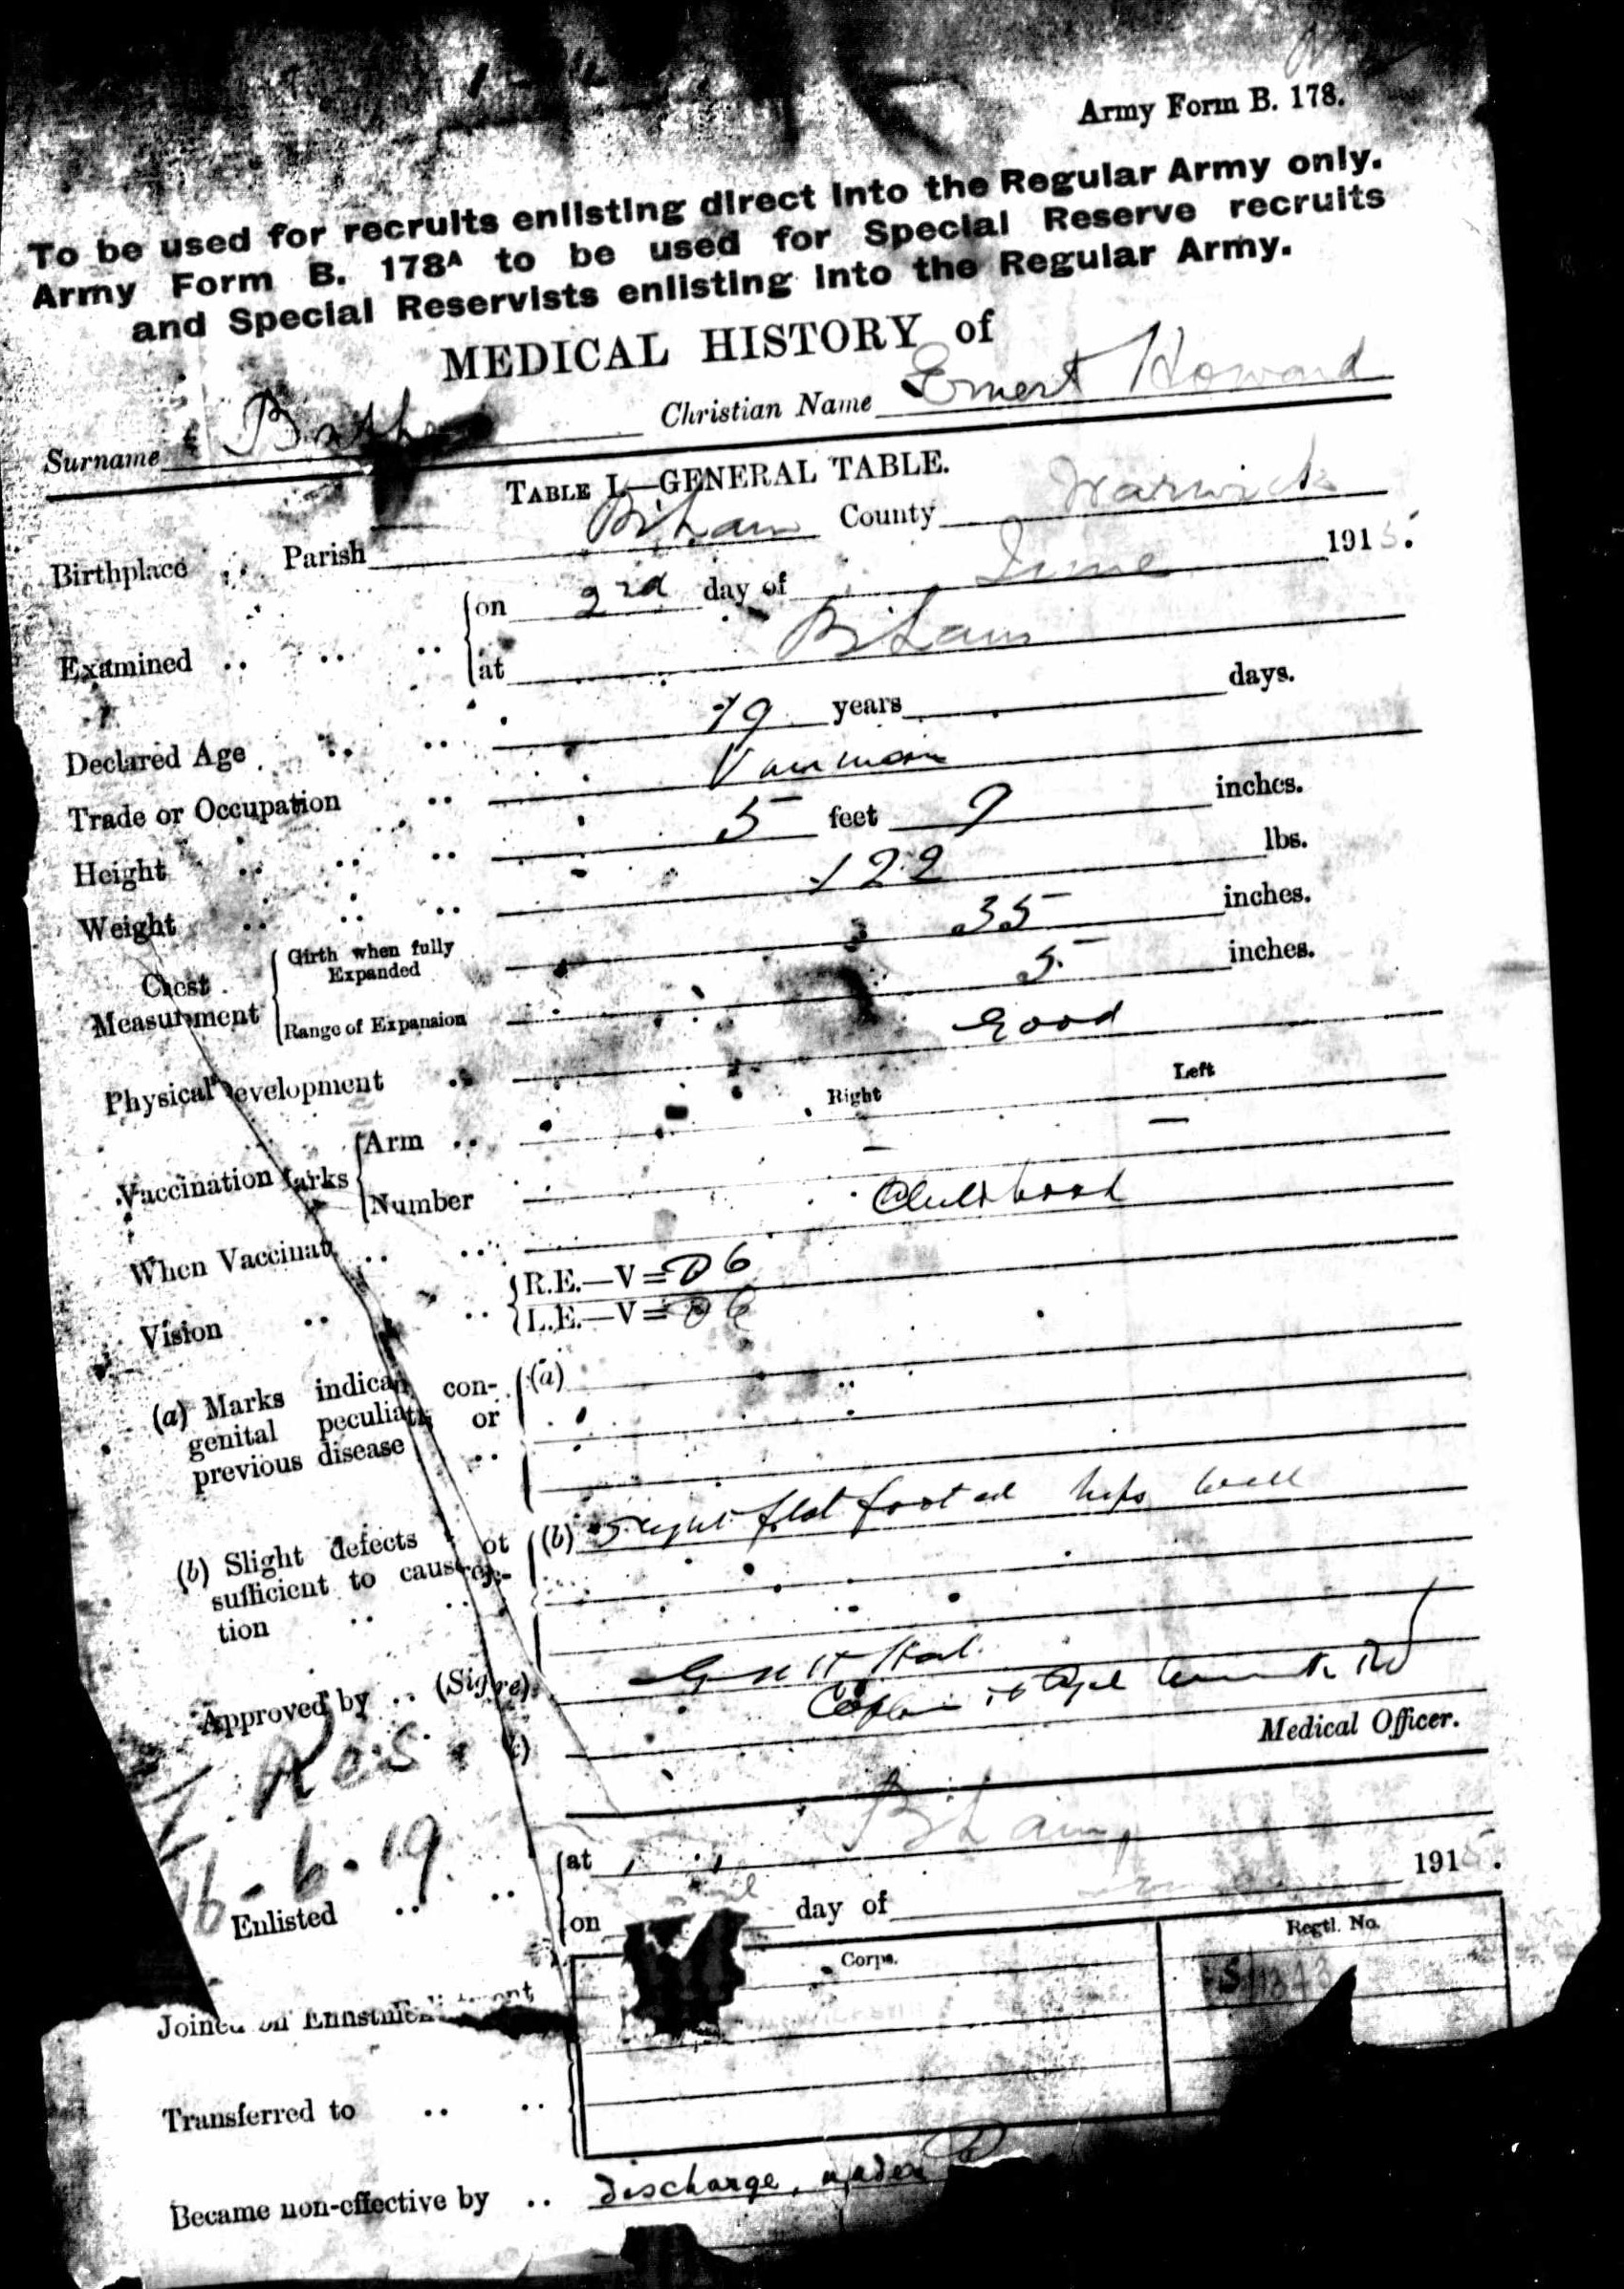 Army Form B. 178.
To be used for recruits enlisting direct into the Regular Army only.
Army Form B. 178A to be used for Special Reserve recruits
and Special Reservists enlisting into the Regular Army.
MEDICAL HISTORY of
Surname Christian Name Ernest Howard
TABLE I.—GENERAL TABLE.
Birthplace .. Parish B'ham County Warwick
Examined .. .. .. on 2nd day of June 1915.
at B'ham
Declared Age .. .. 19 years days.
Trade or Occupation .. Vanman
Height .. .. .. 5 feet 7 inches.
Weight .. .. .. 122 lbs.
Chest Measurement Girth when fully Expanded 35 inches.
Range of Expansion 5 inches.
Physical Development .. Good
Right Left
Vaccination Marks Arm .. — —
Number
When Vaccinat .. .. Childhood
Vision .. .. R.E.—V= D6
L.E.—V= D6
(a) Marks indicat con- (a)
genital peculiarit or
previous disease ..
(b) Slight defects ot (b) Slight flat footed hops well
sufficient to cause rejec-
tion .. ..
Approved by .. (Sig re)
Medical Officer.
Z. Res.
16-6-19
Enlisted .. .. at B'ham
on day of 191 .
Corps. Regtl. No.
Joined on Enlistment
Transferred to .. ..
Became non-effective by .. discharge, under